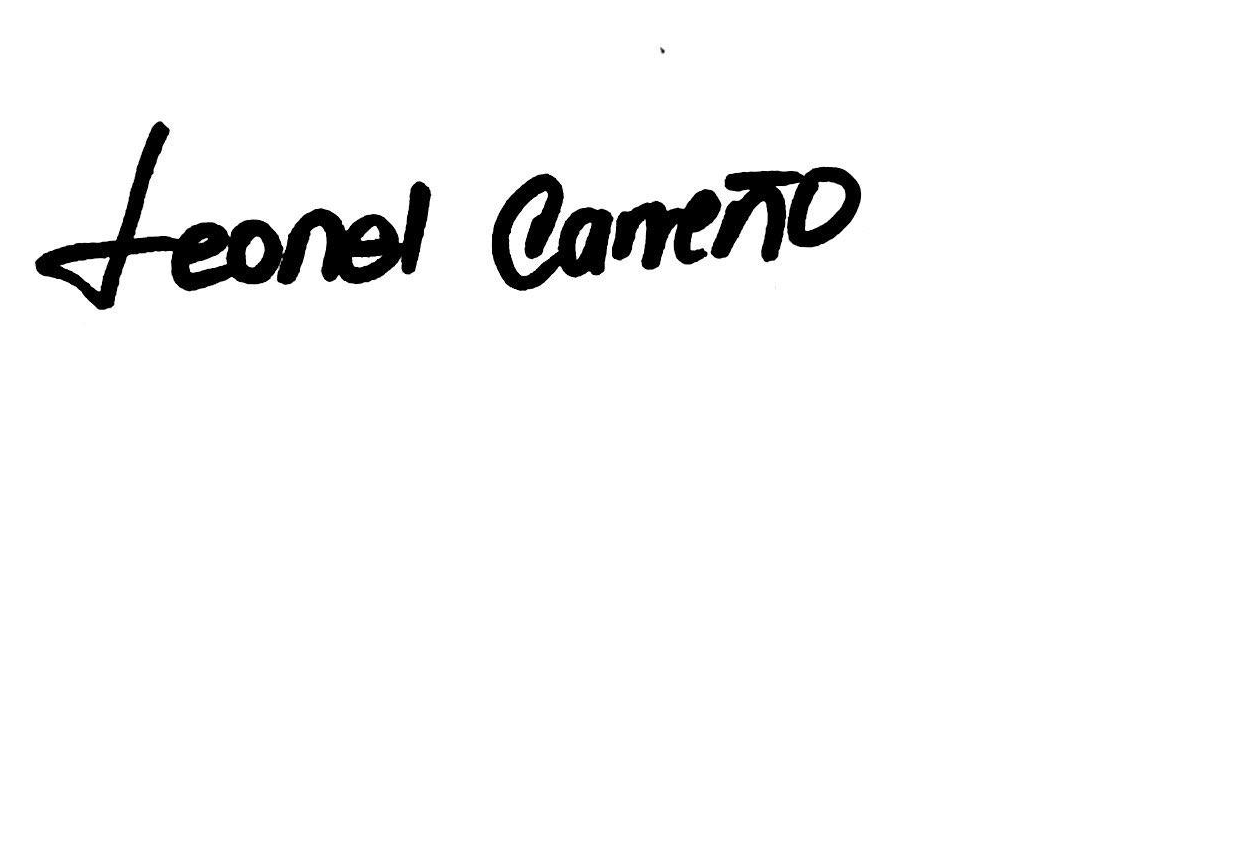 Leonel Carreño